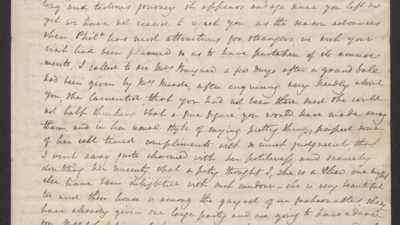 long and tedious journey it appears an age since you left us
yet we have not ceased to you, as the season advances
when Phila has most attractions for strangers we wish your
visit had been to us to have partaken of its amuse-
ments. I called to see Mrs a few days after a grand ball
had been given by Mrs Meade, after enquiring very kindly about
you, she lamented that you had not been there and she could
not help thinking what a fine figure you would have made among
them and in her usual style of saying pretty things, some
of her well timed compliments with so much judgment, that
I went away quite charmed with her politeness and scarcely
doubting her sincerity what a pity thought I, she is a
else have been delighted with such she is very beautiful
too and their house is among the gayest of our fashionables they
have already given one large party and are going to have a dance